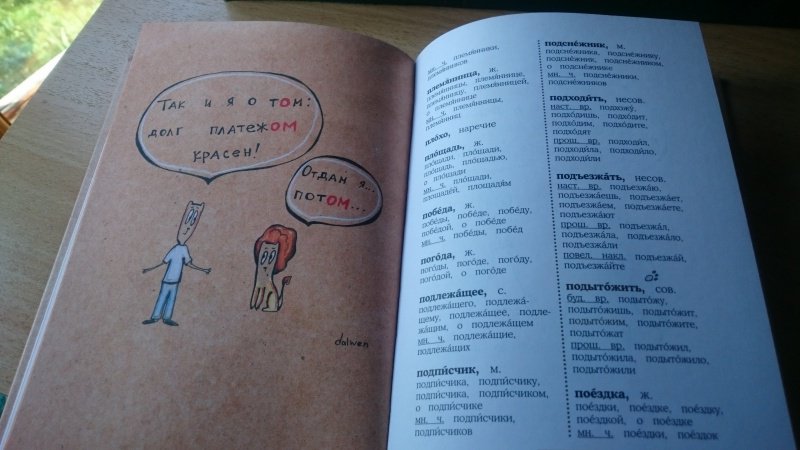 Так и я о том:
долг платежом
красен!
Отдам я...
потом...
dalwen
мн. ч. племя́нники,
племя́нников
племя́нница, ж.
племя́нницы, племя́ннице,
племя́нницу, племя́нницей,
о племя́ннице
мн. ч. племя́нницы,
племя́нниц
пло́хо, наречие
пло́щадь, ж.
пло́щади, пло́щади,
пло́щадь, пло́щадью,
о пло́щади
мн. ч. пло́щади,
площаде́й, площадя́м
побе́да, ж.
побе́ды, побе́де, побе́ду,
побе́дой, о побе́де
мн. ч. побе́ды, побе́д
пого́да, ж.
пого́ды, пого́де, пого́ду,
пого́дой, о пого́де
подлежа́щее, с.
подлежа́щего, подлежа́-
щему, подлежа́щее, подле-
жа́щим, о подлежа́щем
мн. ч. подлежа́щие,
подлежа́щих
подпи́счик, м.
подпи́счика, подпи́счику,
подпи́счика, подпи́счиком,
о подпи́счике
мн. ч. подпи́счики,
подпи́счиков
подсне́жник, м.
подсне́жника, подсне́жнику,
подсне́жник, подсне́жником,
о подсне́жнике
мн. ч. подсне́жники,
подсне́жников
подходи́ть, несов.
наст. вр. подхожу́,
подхо́дишь, подхо́дит,
подхо́дим, подхо́дите,
подхо́дят
прош. вр. подходи́л,
подходи́ла, подходи́ло,
подходи́ли
подъезжа́ть, несов.
наст. вр. подъезжа́ю,
подъезжа́ешь, подъезжа́ет,
подъезжа́ем, подъезжа́ете,
подъезжа́ют
прош. вр. подъезжа́л,
подъезжа́ла, подъезжа́ло,
подъезжа́ли
повел. накл. подъезжа́й,
подъезжа́йте
подыто́жить, сов.
буд. вр. подыто́жу,
подыто́жишь, подыто́жит,
подыто́жим, подыто́жите,
подыто́жат
прош. вр. подыто́жил,
подыто́жила, подыто́жило,
подыто́жили
пое́здка, ж.
пое́здки, пое́здке, пое́здку,
пое́здкой, о пое́здке
мн. ч. пое́здки, пое́здок